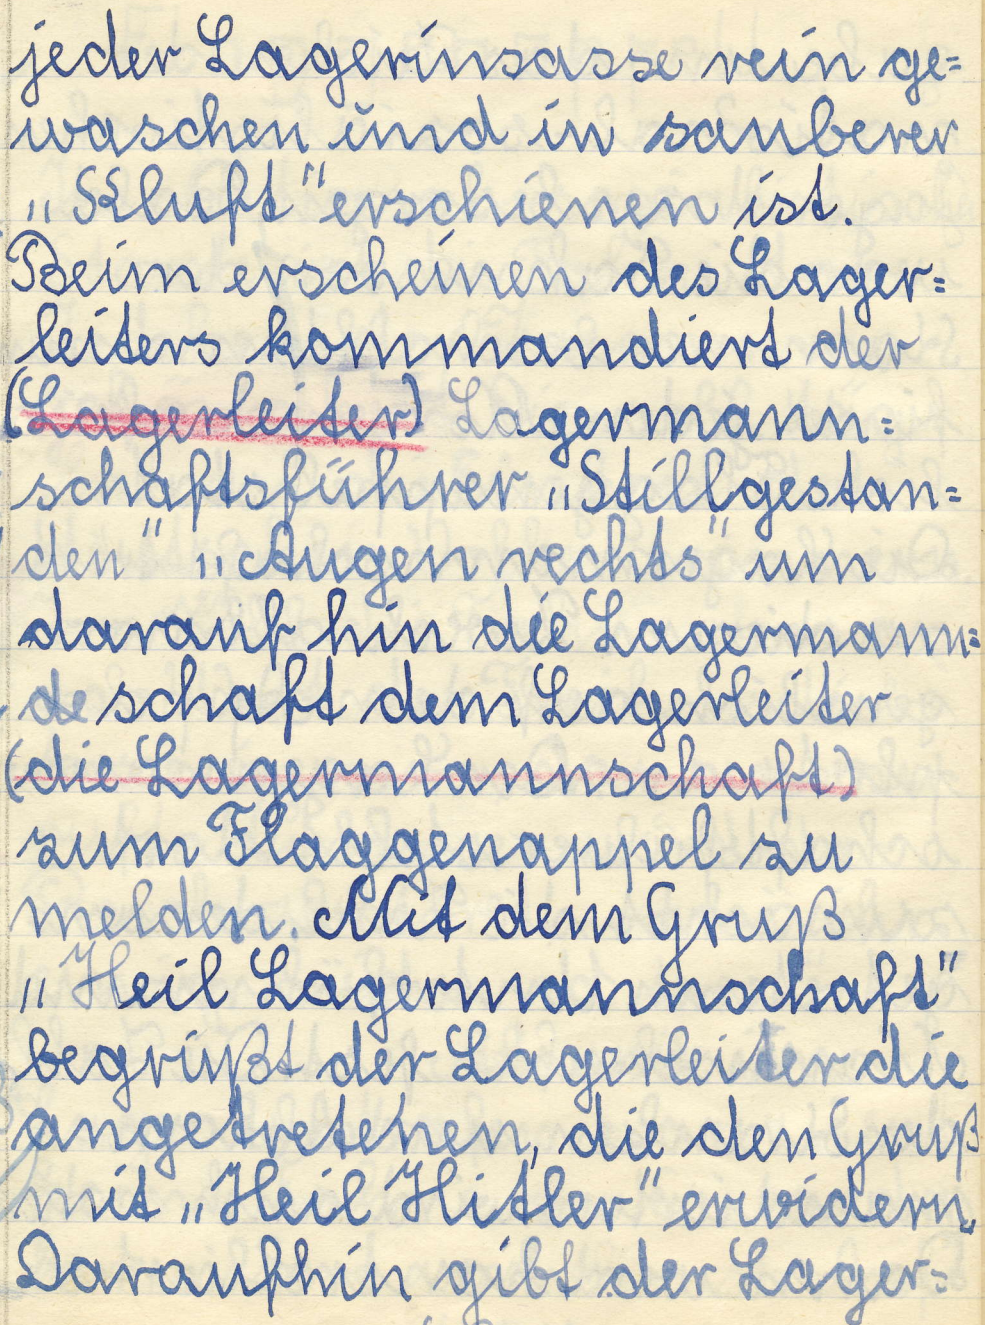 jeder Lagerinsasse rein ge=
waschen und in sauberer
„Kluft" erschienen ist.
Beim erscheinen des Lager=
leiters kommandiert der
(Lagerleiter) Lagermann=
schaftsführer „Stillgestan=
den" „Augen rechts" um
darauf hin die Lagermann=
de schaft dem Lagerleiter
(die Lagermannschaft)
zum Flaggenappel zu
melden. Mit dem Gruß
„Heil Lagermannschaft"
begrüßt der Lagerleiter die
angetretehen, die den Gruß
mit „Heil Hitler" erwidern.
Daraufhin gibt der Lager=